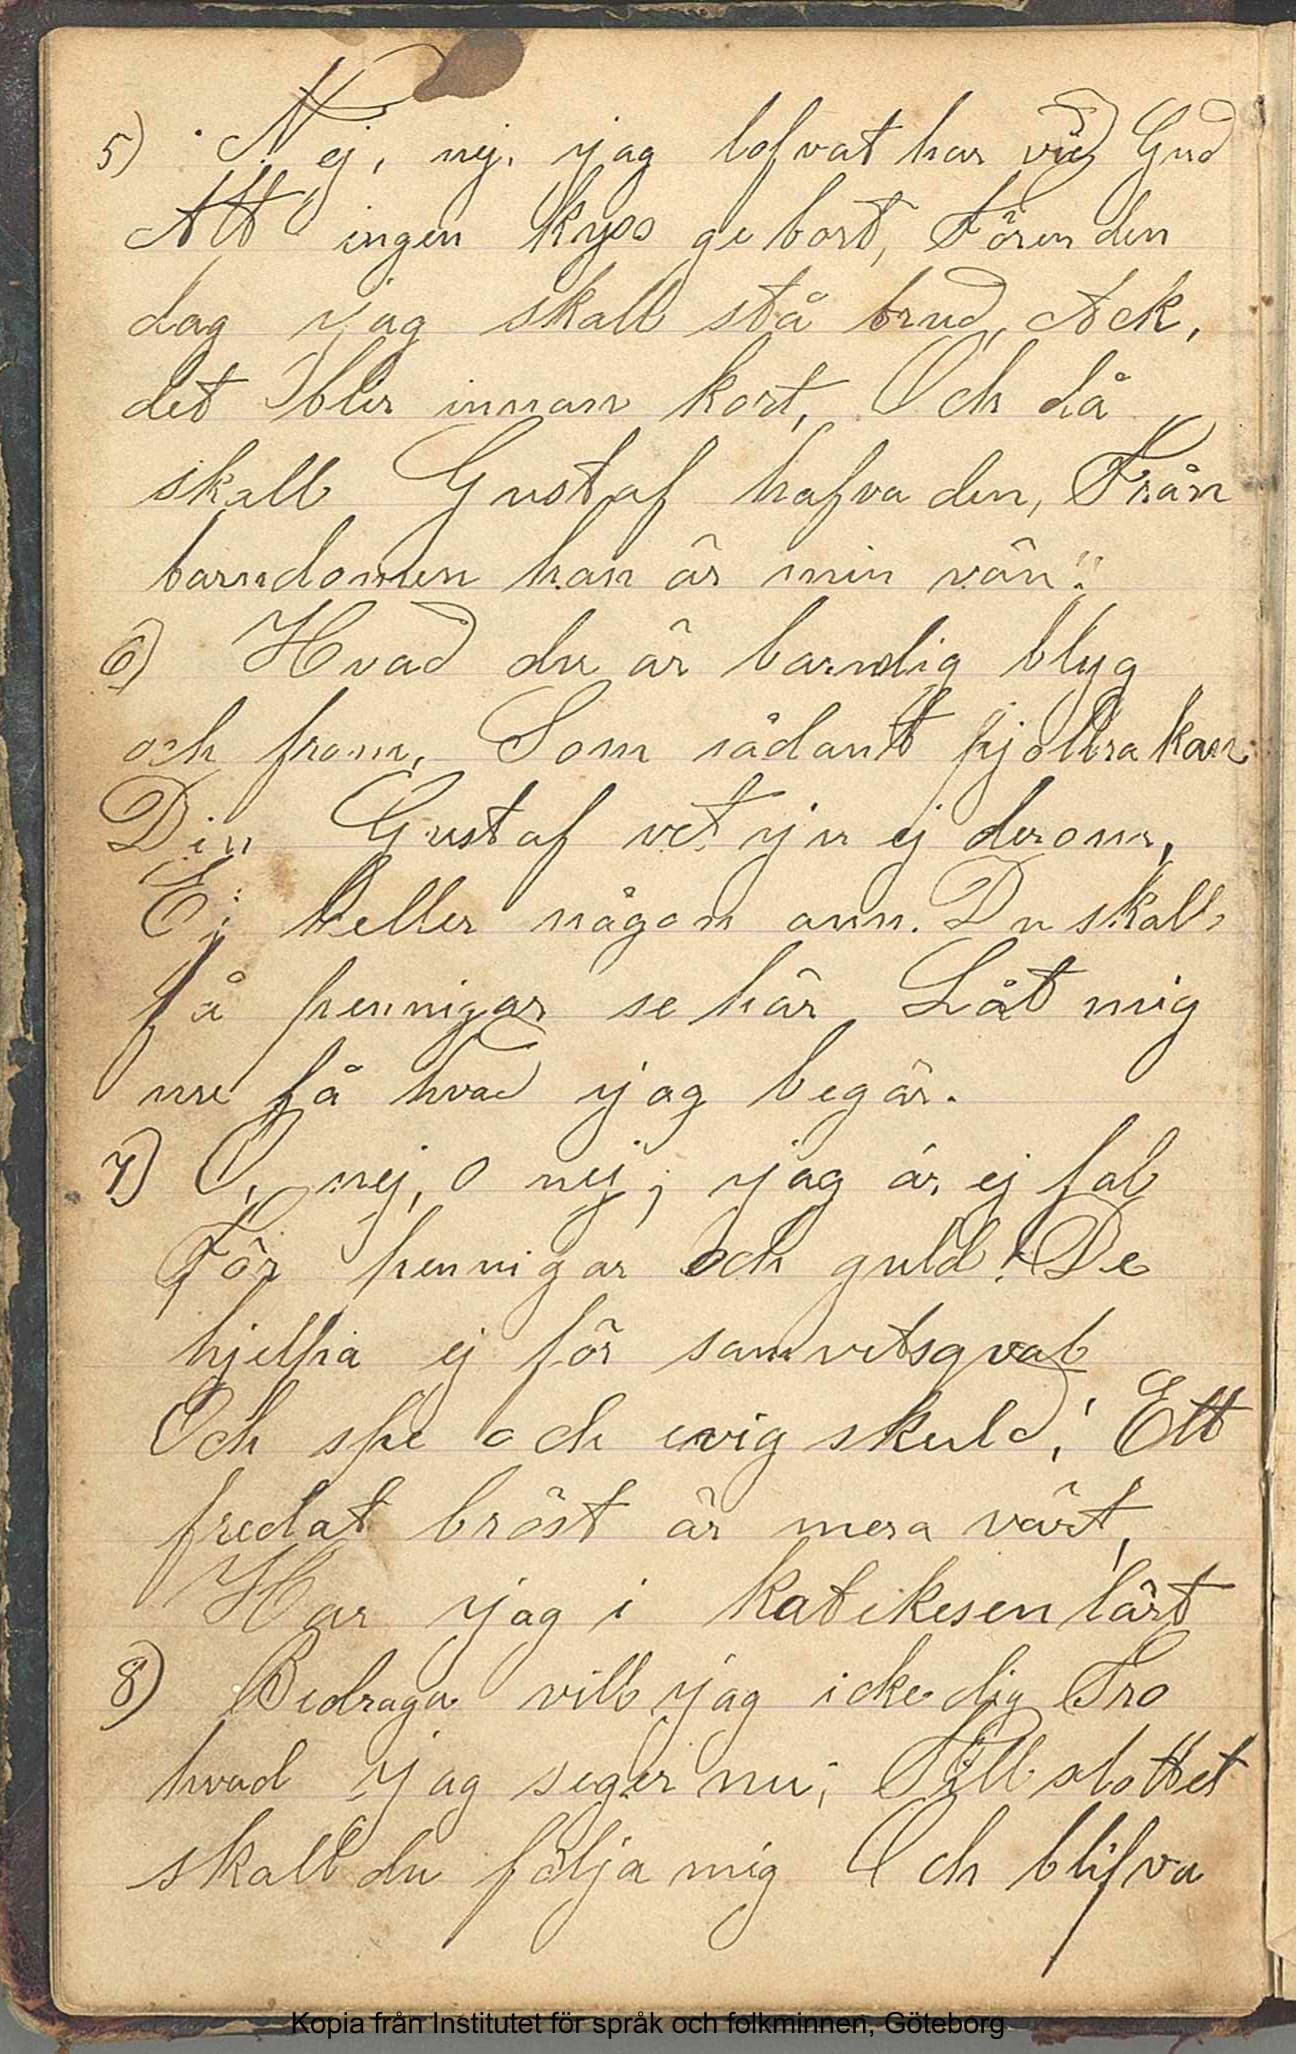 5) Nej, nej, jag lofvat har vid Gud
Att ingen kyss ge bort, Fören den
dag jag skall stå brud, Ack,
det blir innan kort, Och då
skall Gustaf hafva den, Från
barndomen han är min vän".
6) Hvad du är barnslig blyg
och from, Som sådant fjollra kan
Din Gustaf vet ju ej derom,
Ej heller någon ann. Du skall
få pennigar se här Låt mig
nu få hvad jag begär.
7) O, nej, o nej, jag är ej fal
För pennigar och guld! De
hjelpa ej för samvetsqval
Och spe och evig skuld! Ett
fredat bröst är mera värt,
Har jag i katekesen lärt
8) Bedraga vill jag icke dig Tro
hvad jag seger nu; Till slottet
skall du följa mig Och blifva
Kopia från Institutet för språk och folkminnen, Göteborg